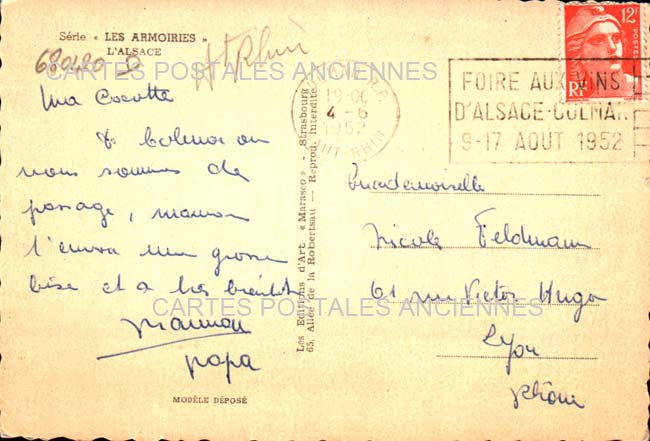 Série « LES ARMOIRIES »
L'ALSACE
680480 D
Ht Rhin
CARTES POSTALES ANCIENNES
12F
POSTES
RF
19-
4 - 6
1952
HAUT-RHIN
FOIRE AUX VINS
D'ALSACE-COLMAR
9-17 AOUT 1952
Ma Cocotte
de Colmar où
nous sommes de
passage, maman
t'envoie une grosse
bise et a très bientôt
maman
papa
MODÈLE DÉPOSÉ
Les Editions d'Art « Marasco » - Strasbourg
65, Allée de la Robertsau — Reprod. interdite
Mademoiselle
Nicole Feldmann
61 rue Victor Hugo
Lyon
Rhône
CARTES POSTALES ANCIENNES